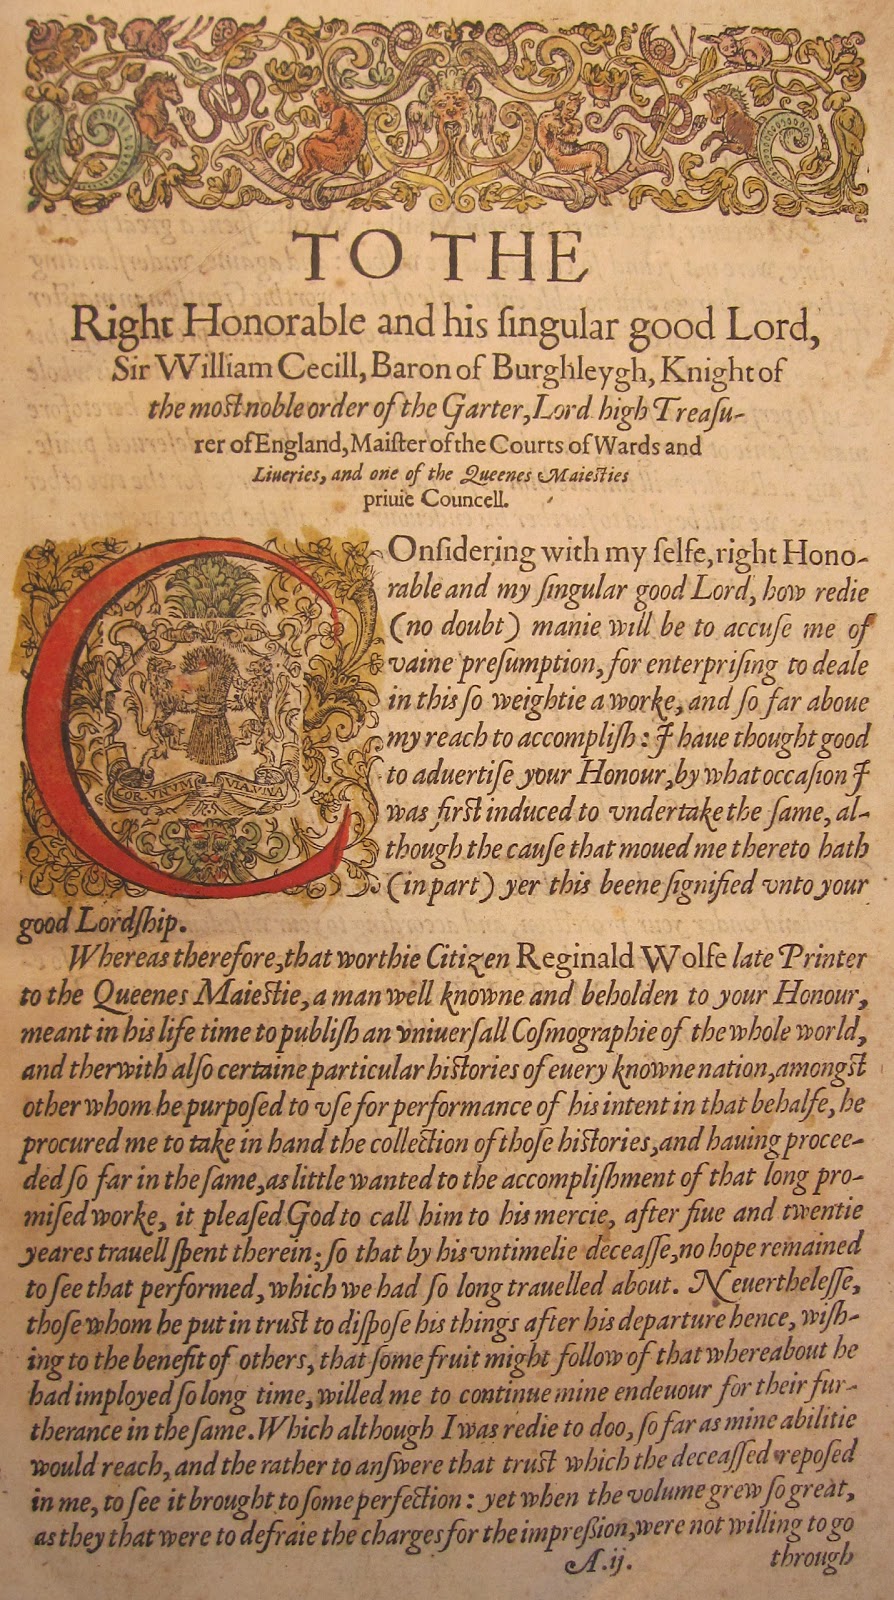 TO THE
Right Honorable and his ſingular good Lord,
Sir William Cecill, Baron of Burghleygh, Knight of
the moſt noble order of the Garter, Lord high Treaſu-
rer of England, Maiſter of the Courts of Wards and
Liueries, and one of the Queenes Maieſties
priuie Councell.
COnſidering with my ſelfe, right Hono-
rable and my ſingular good Lord, how redie
(no doubt) manie will be to accuſe me of
vaine preſumption, for enterpriſing to deale
in this ſo weightie a worke, and ſo far aboue
my reach to accompliſh: I haue thought good
to aduertiſe your Honour, by what occaſion I
was firſt induced to vndertake the ſame, al-
though the cauſe that moued me thereto hath
(in part) yer this beene ſignified vnto your
good Lordſhip.
COR VNVM VIA VNA
Whereas therefore, that worthie Citizen Reginald Wolfe late Printer
to the Queenes Maieſtie, a man well knowne and beholden to your Honour,
meant in his life time to publiſh an vniuerſall Coſmographie of the whole world,
and therwith alſo certaine particular hiſtories of euery knowne nation, amongſt
other whom he purpoſed to vſe for performance of his intent in that behalfe, he
procured me to take in hand the collection of thoſe hiſtories, and hauing procee-
ded ſo far in the ſame, as little wanted to the accompliſhment of that long pro-
miſed worke, it pleaſed God to call him to his mercie, after fiue and twentie
yeares trauell ſpent therein; ſo that by his vntimelie deceaſſe, no hope remained
to ſee that performed, which we had ſo long trauelled about. Neuertheleſſe,
thoſe whom he put in truſt to diſpoſe his things after his departure hence, wiſh-
ing to the benefit of others, that ſome fruit might follow of that whereabout he
had imployed ſo long time, willed me to continue mine endeuour for their fur-
therance in the ſame. Which although I was redie to doo, ſo far as mine abilitie
would reach, and the rather to anſwere that truſt which the deceaſſed repoſed
in me, to ſee it brought to ſome perfection: yet when the volume grew ſo great,
as they that were to defraie the charges for the impreſſion, were not willing to go
A.ij. through